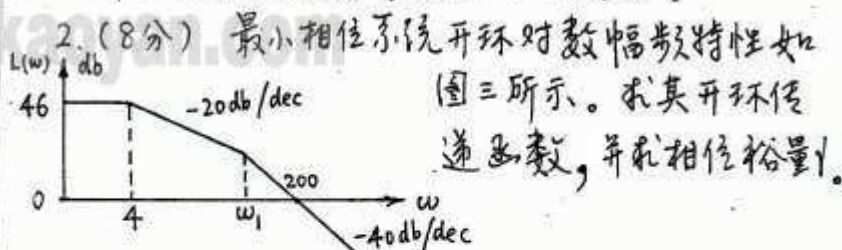 2.(8分) 最小相位系统开环对数幅频特性如
图三所示。求其开环传
递函数,并求相位裕量γ。
L(ω) db
46
-20db/dec
200
0
4
ω₁
ω
-40db/dec